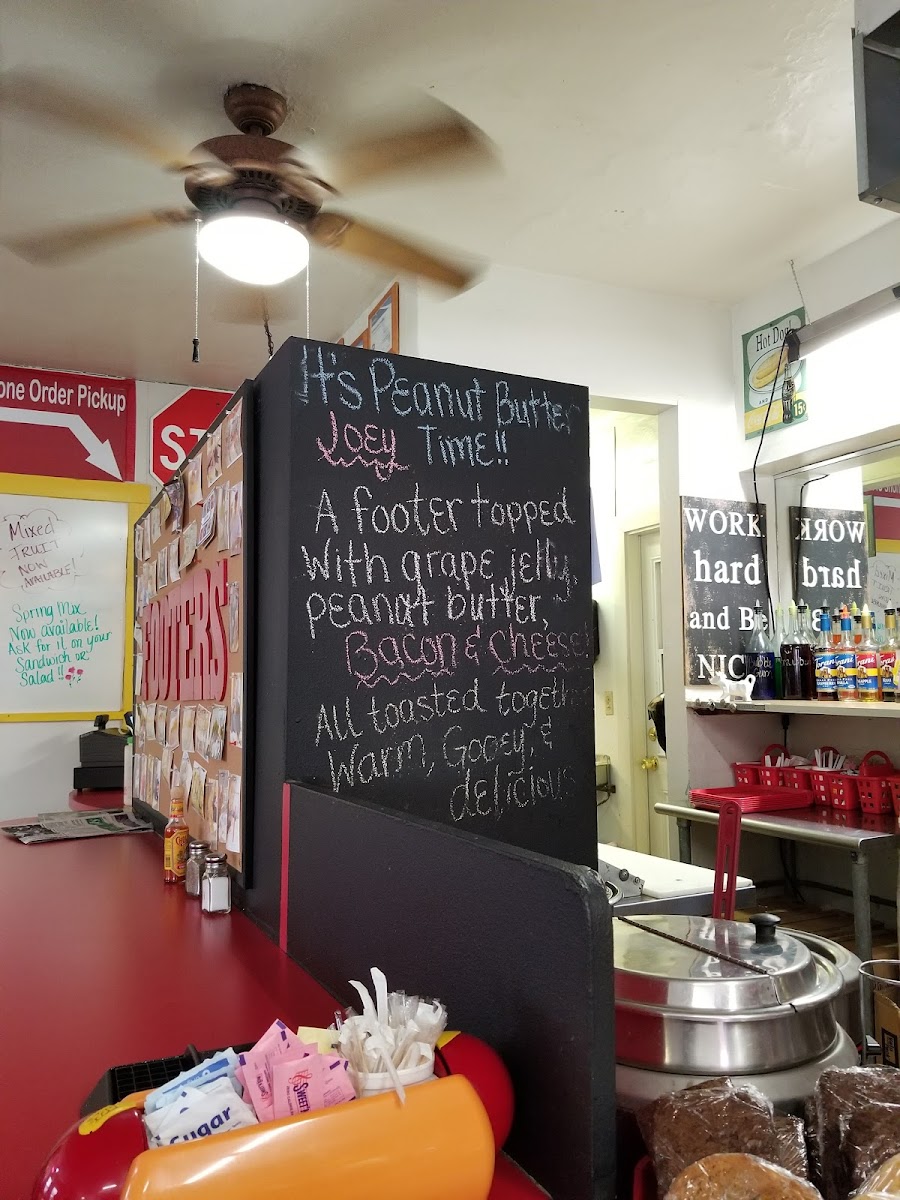 It's Peanut Butter
Joey Time!!
A footer topped
With grape jelly,
peanut butter,
Bacon & Cheese
All toasted togethe
Warm, Gooey, &
delicious
one Order Pickup
ST
Mixed
FRUIT
NOW
AVAILABLE!
Spring Mix
Now available!
Ask for it on your
Sandwich or
Salad!!
FOOTERS'
Hot Dog
AND
15¢
WORK
hard
and Be
NIC
WORK
hard
Torani
Torani
Torani
Sugar
SWEET